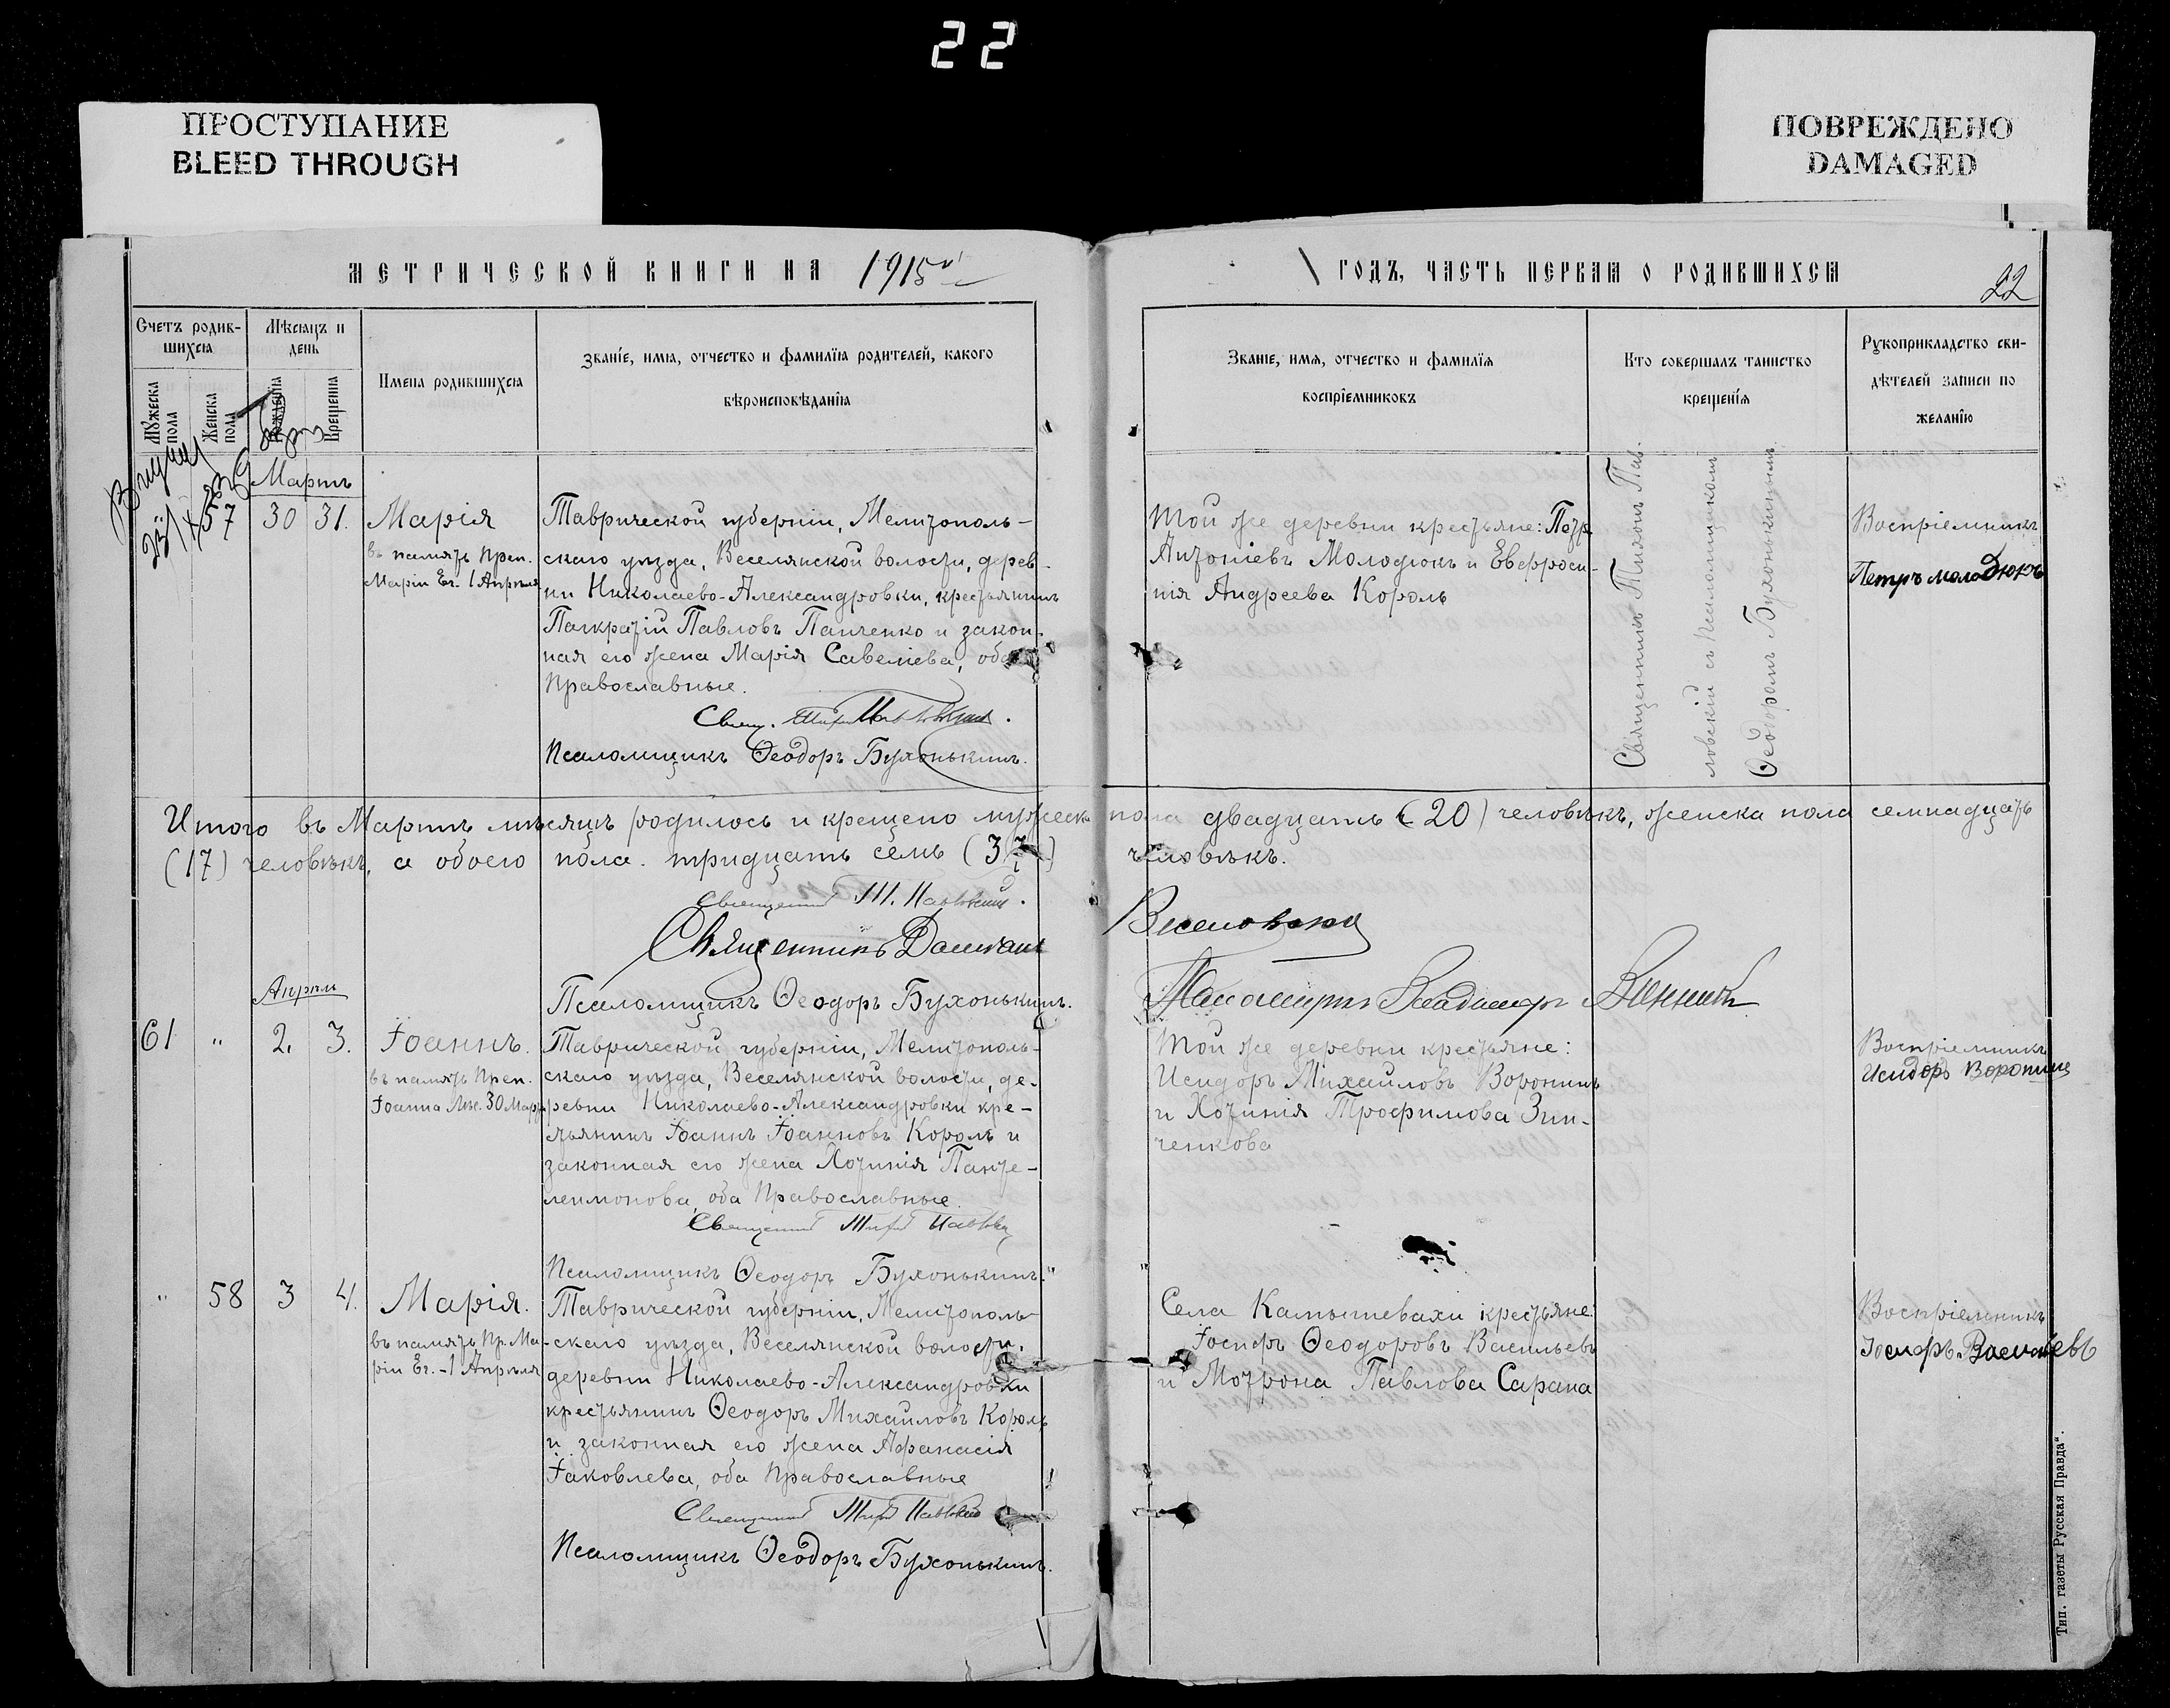 22
ПРОСТУПАНИЕ
BLEED THROUGH
ПОВРЕЖДЕНО
DAMAGED
МЕТРИЧЕСКОЙ КНИГИ НА 1915
ГОДЪ, ЧАСТЬ ПЕРВАЯ О РОДИВШИХСЯ
22
Счетъ родив-
шихся
Мѣсяцъ и
день
Мужеска
пола
Женска
пола
Рожденія
Крещенія
Имена родившихся
Званіе, имя, отчество и фамилія родителей, какого
вѣроисповѣданія
Званіе, имя, отчество и фамилія
воспріемниковъ
Кто совершалъ таинство
крещенія
Рукоприкладство сви-
дѣтелей записи по
желанію
Мартъ
57 30 31. Марія
въ память Преп.
Маріи Ег. 1 Апрѣля
Таврической губерніи, Мелитополь-
скаго уѣзда, Веселянской волости, дерев-
ни Николаево-Александровки, крестьянинъ
Панкратій Павловъ Панченко и закон-
ная его жена Марія Савеліева, оба
Православные.
Свящ.
Псаломщикъ Ѳеодоръ Бухонькинъ.
Той же деревни крестьяне: Петръ
Антоніевъ Молодюкъ и Евфроси-
нія Андреева Король
Священникъ Тихонъ Пав-
ловскій съ псаломщикомъ
Ѳеодоромъ Бухонькинымъ
Воспріемникъ
Петръ Молодюкъ
Итого въ Мартѣ мѣсяцѣ родилось и крещено мужеска пола двадцать (20) человѣкъ, женска пола семнадцать
(17) человѣкъ, а обоего пола тридцать семь (37) человѣкъ.
Священникъ Т. Павловскій.
Священникъ
Псаломщикъ Ѳеодоръ Бухонькинъ.
Псаломщикъ Владимиръ
Апрѣль
61 " 2. 3. Іоаннъ.
въ память Преп.
Іоанна Лѣс. 30 Марта
Таврической губерніи, Мелитополь-
скаго уѣзда, Веселянской волости, де-
ревни Николаево-Александровки кре-
стьянинъ Іоаннъ Іоанновъ Король и
законная его жена Хотинія Панте-
леимонова, оба Православные
Священникъ Тихонъ Павловскій
Псаломщикъ Ѳеодоръ Бухонькинъ."
Той же деревни крестьяне:
Исидоръ Михаиловъ Воронинъ
и Хотинія Трофимова Зин-
ченкова
Воспріемникъ
Исидоръ Воронинъ
" 58 3 4. Марія.
въ память Пр. Ма-
ріи Ег. - 1 Апрѣля
Таврической губерніи, Мелитополь-
скаго уѣзда, Веселянской волости,
деревни Николаево-Александровки
крестьянинъ Ѳеодоръ Михаиловъ Король
и законная его жена Афанасія
Іаковлева, оба Православные
Священникъ Тихонъ Павловскій
Псаломщикъ Ѳеодоръ Бухонькинъ.
Села Камышевахи крестьяне:
Іосифъ Ѳеодоровъ Васильевъ
и Мотрона Павлова Сарана
Воспріемникъ
Іосифъ Васильевъ
Тип. газеты Русская Правда".